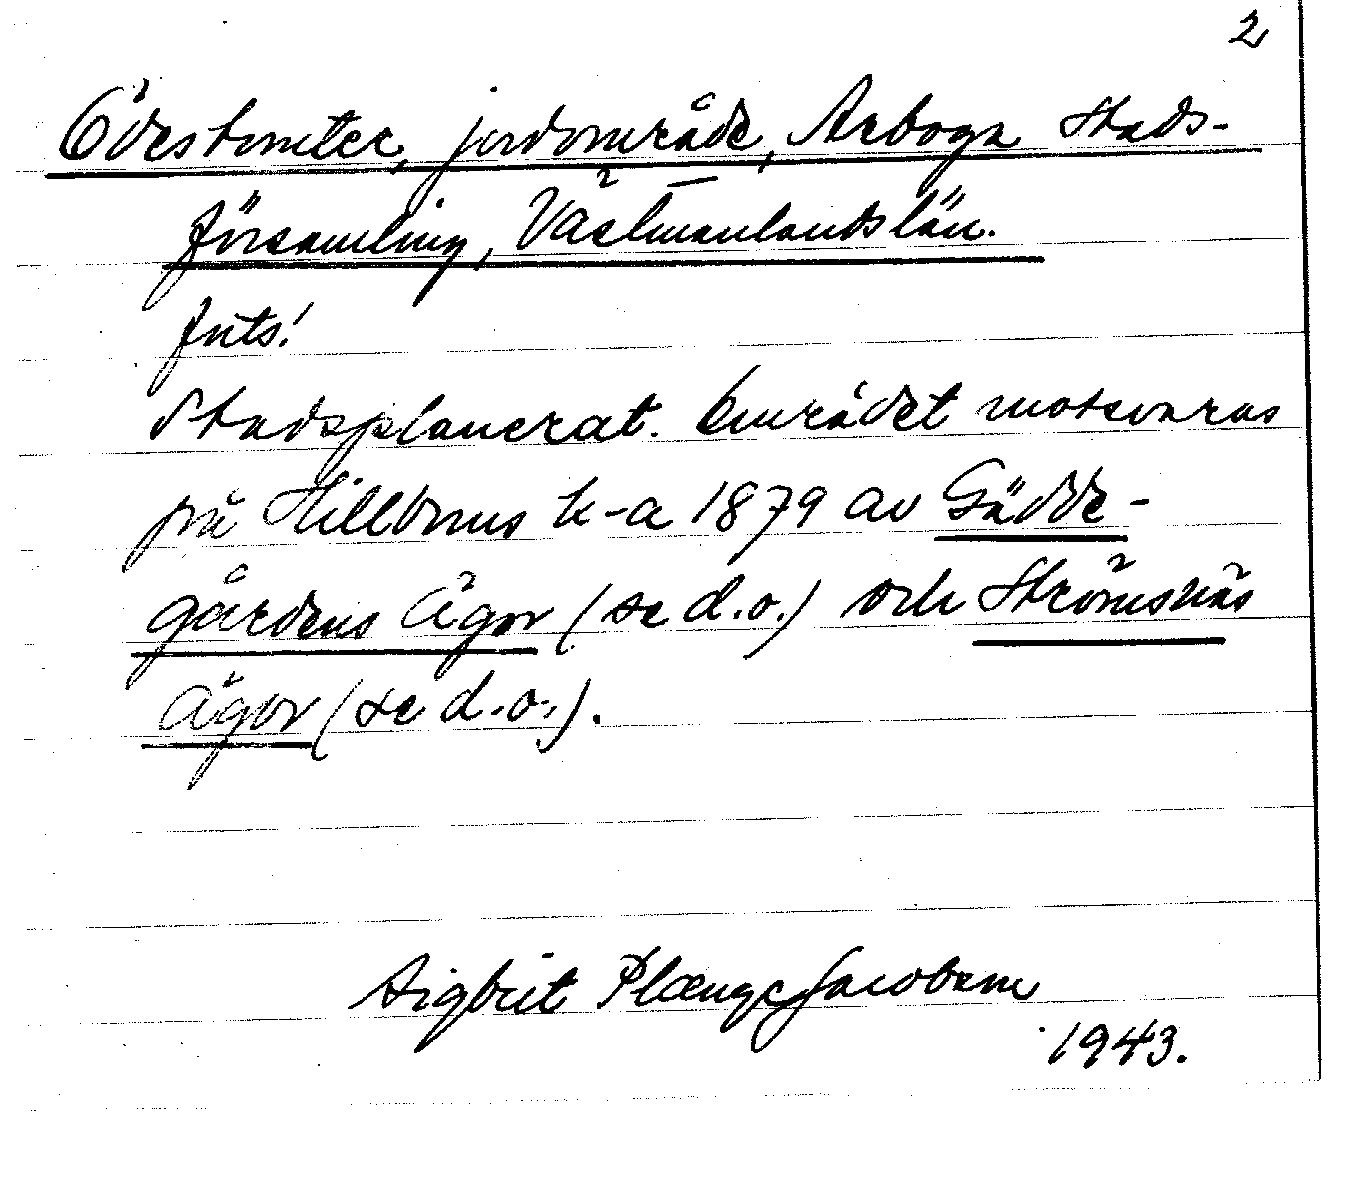 2
Ödestomter, jordområde, Arboga Stads-
församling, Västmanlands län.
Forts!
Stadsplanerat. Området motsvaras
på Hillboms k-a 1879 av Gädde-
gårdens Ägor (se d.o.) och Strömsnäs
Ägor (se d.o.).
Sigbrit Plænge Jacobson
1943.